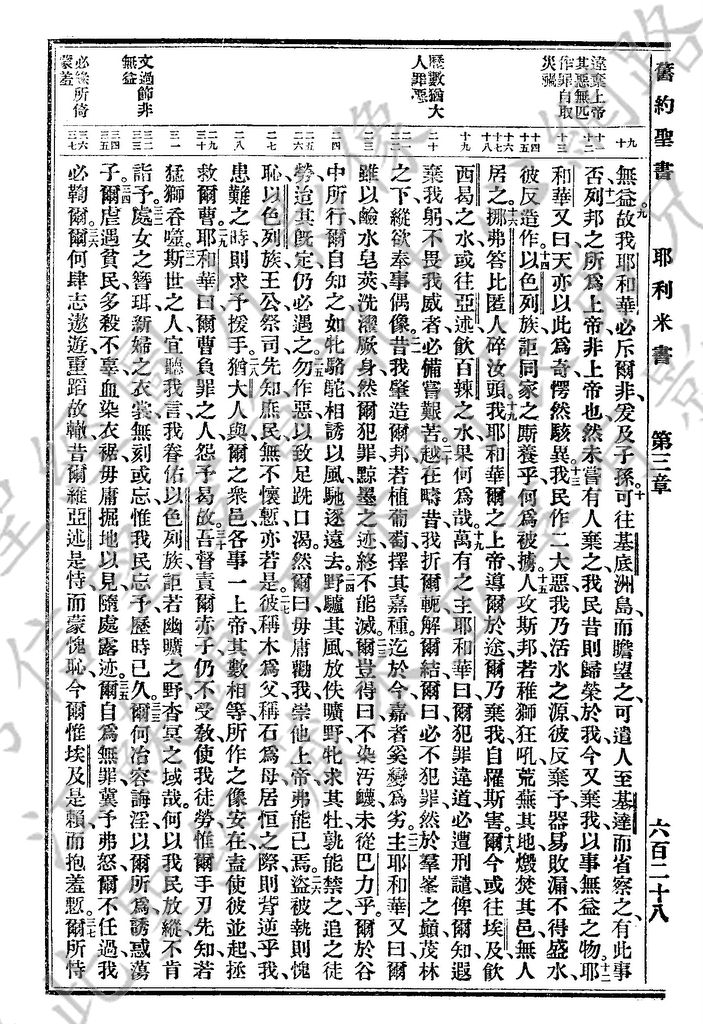 舊約聖書 耶利米書 第三章 六百二十八
違棄上帝
其惡無匹
作罪自取
災禍
歷數猶大
人罪惡
文過飾非
無益
必緣所倚
蒙羞
無益故我耶和華必斥爾非爰及子孫可往基底洲島而瞻望之可遣人至基達而省察之有此事
否列邦之所爲上帝非上帝也然未嘗有人棄之我民昔則歸榮於我今又棄我以事無益之物耶
和華又曰天亦以此爲奇愕然駭異我民作二大惡我乃活水之源彼反棄予器易敗漏不得盛水
彼反造作以色列族詎同家之厮養乎何爲被擄人攻斯邦若稚獅狂吼荒蕪其地燬焚其邑無人
居之挪弗答比匿人碎汝頭我耶和華爾之上帝導爾於途爾乃棄我自罹斯害爾今或往埃及飲
西曷之水或往亞述飲百辣之水果何爲哉萬有之主耶和華曰爾犯罪違道必遭刑譴俾爾知遐
棄我躬不畏我威者必備嘗艱苦越在疇昔我折爾軛解爾結爾曰必不犯罪然於羣峯之巔茂林
之下縱欲奉事偶像昔我肇造爾邦若植葡萄擇其嘉種迄於今嘉者奚變爲劣主耶和華又曰爾
雖以鹼水皂莢洗濯厥身然爾犯罪黥墨之迹終不能滅爾豈得曰不染汚衊未從巴力乎爾於谷
中所行爾自知之如牝駱駝相誘以風馳逐遠去野驢其風放佚曠野牝求其牡孰能禁之追之徒
勞迨其旣定仍必遇之勿作惡以致足跣口渴然爾曰毋庸勸我崇他上帝弗能已焉盜被執則愧
恥以色列族王公祭司先知庶民無不懷慙亦若是彼稱木爲父稱石爲母居恒之際則背逆乎我
患難之時則求予援手猶大人與爾之衆邑各事一上帝其數相等所作之像安在盍使彼並起拯
救爾曹耶和華曰爾曹負罪之人怨予曷故吾督責爾赤子仍不受敎使我徒勞惟爾手刃先知若
猛獅呑噬斯世之人宜聽我言我眷佑以色列族詎若幽曠之野杳冥之域哉何以我民放縱不肯
詣予處女之簪珥新婦之衣裳無刻或忘惟我民忘予歷時已久爾何冶容誨淫以爾所爲誘惑蕩
子爾虐遇貧民多殺不辜血染衣裾毋庸掘地以見隨處露迹爾自爲無罪冀予弗怒爾不任過我
必鞫爾爾何肆志遨遊重蹈故轍昔爾維亞述是恃而蒙愧恥今爾惟埃及是賴而抱羞慙爾所恃